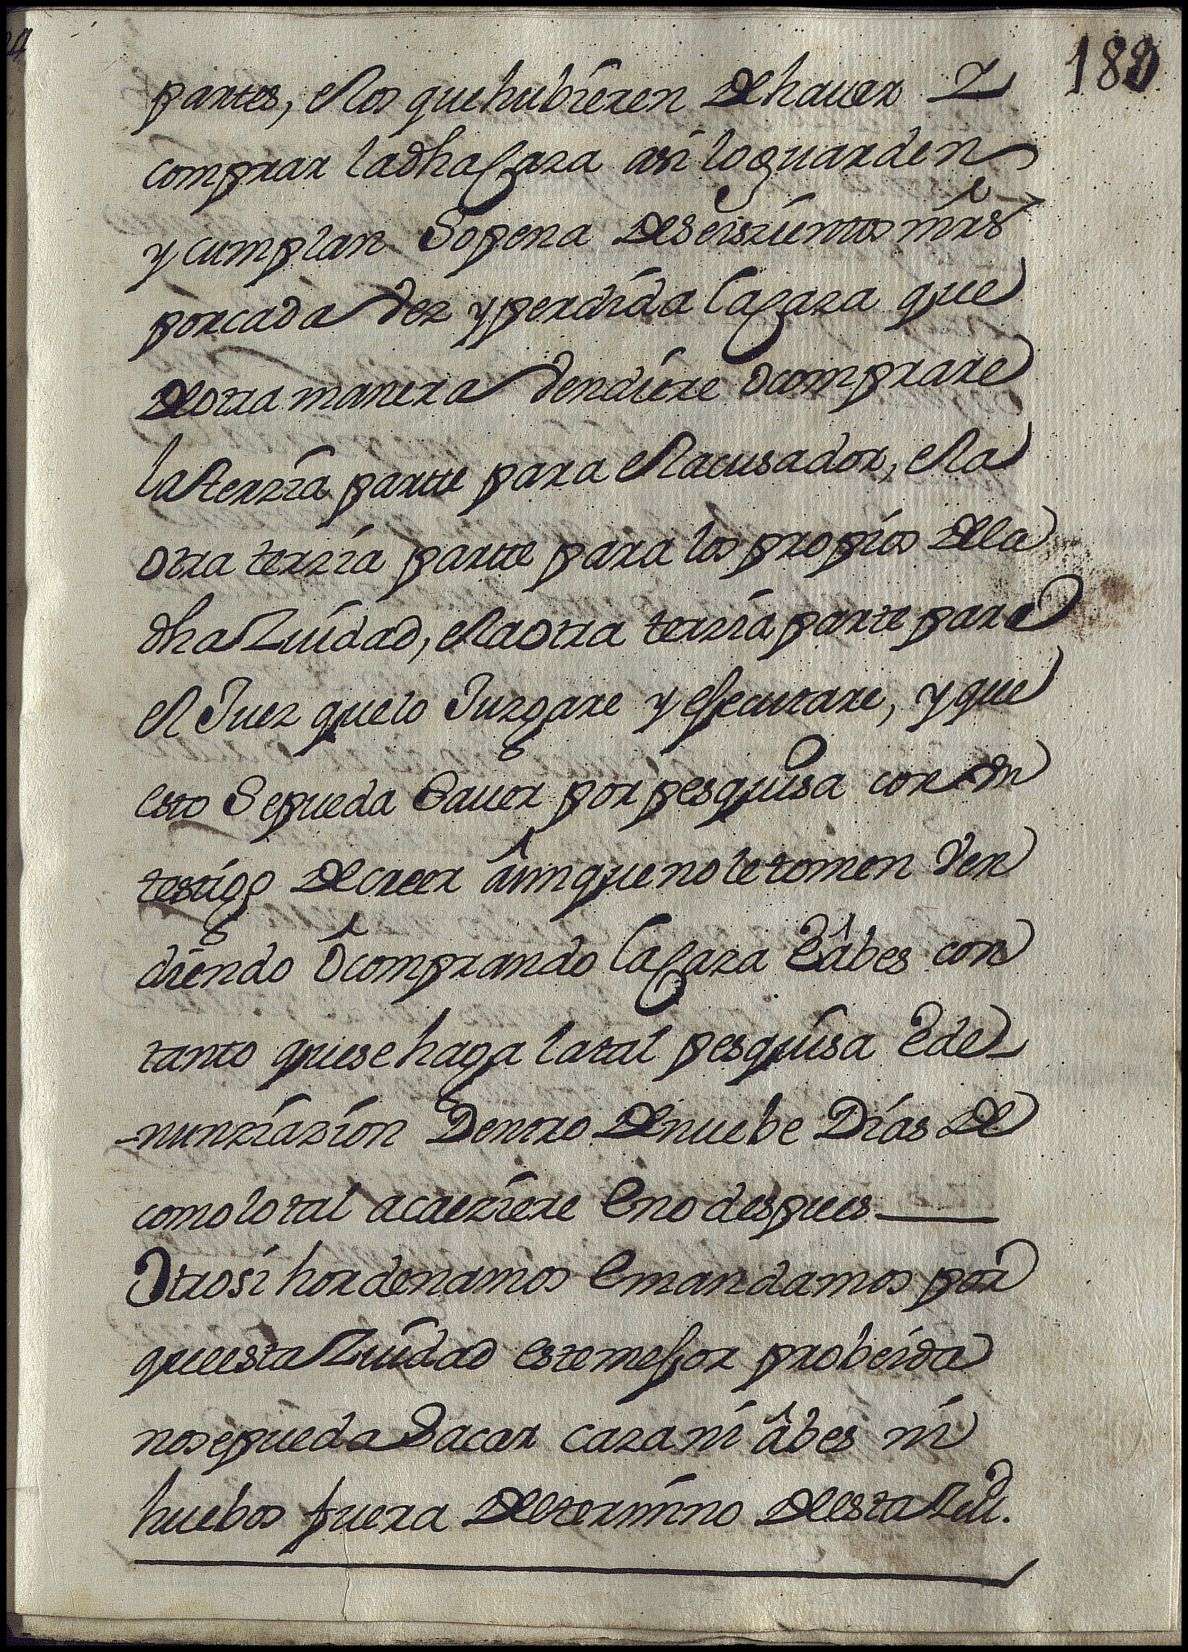 189
partes, e los que hubieren de hauer Z
comprar la dha caza asi lo guarden
y cumplan So pena de seiszientos mrs
por cada vez y perdida la caza que
de otra manera vendiere o comprare
la terzia parte para el acusador, e la
otra terzia parte para los propios de la
dha Ziudad, e la otra terzia parte para
el Juez que lo Juzgare y esecutare, y que
esto Se pueda hauer por pesquisa con un
testigo de creer aunque no le tomen ven
diendo ô comprando la caza E âbes con
tanto que se haga la tal pesquisa E de-
-nunziazion Dentro de nuebe Dias de
como lo tal acaeziere E no despues
Otrosi hordenamos E mandamos por
que esta Ziudad este mejor probeida
no se pueda Sacar caza ni âbes ni
huebos fuera de termino de esta Ziud.